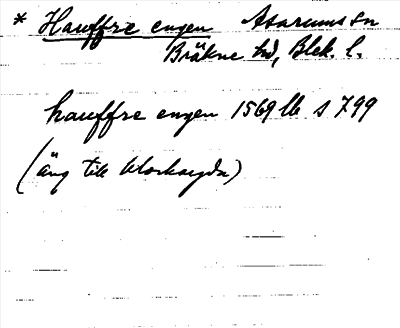 * Hauffre engen Asarums sn
Bräkne hd, Blek. l.
hauffre engen 1569 lb s 799
(äng till klockaryda)